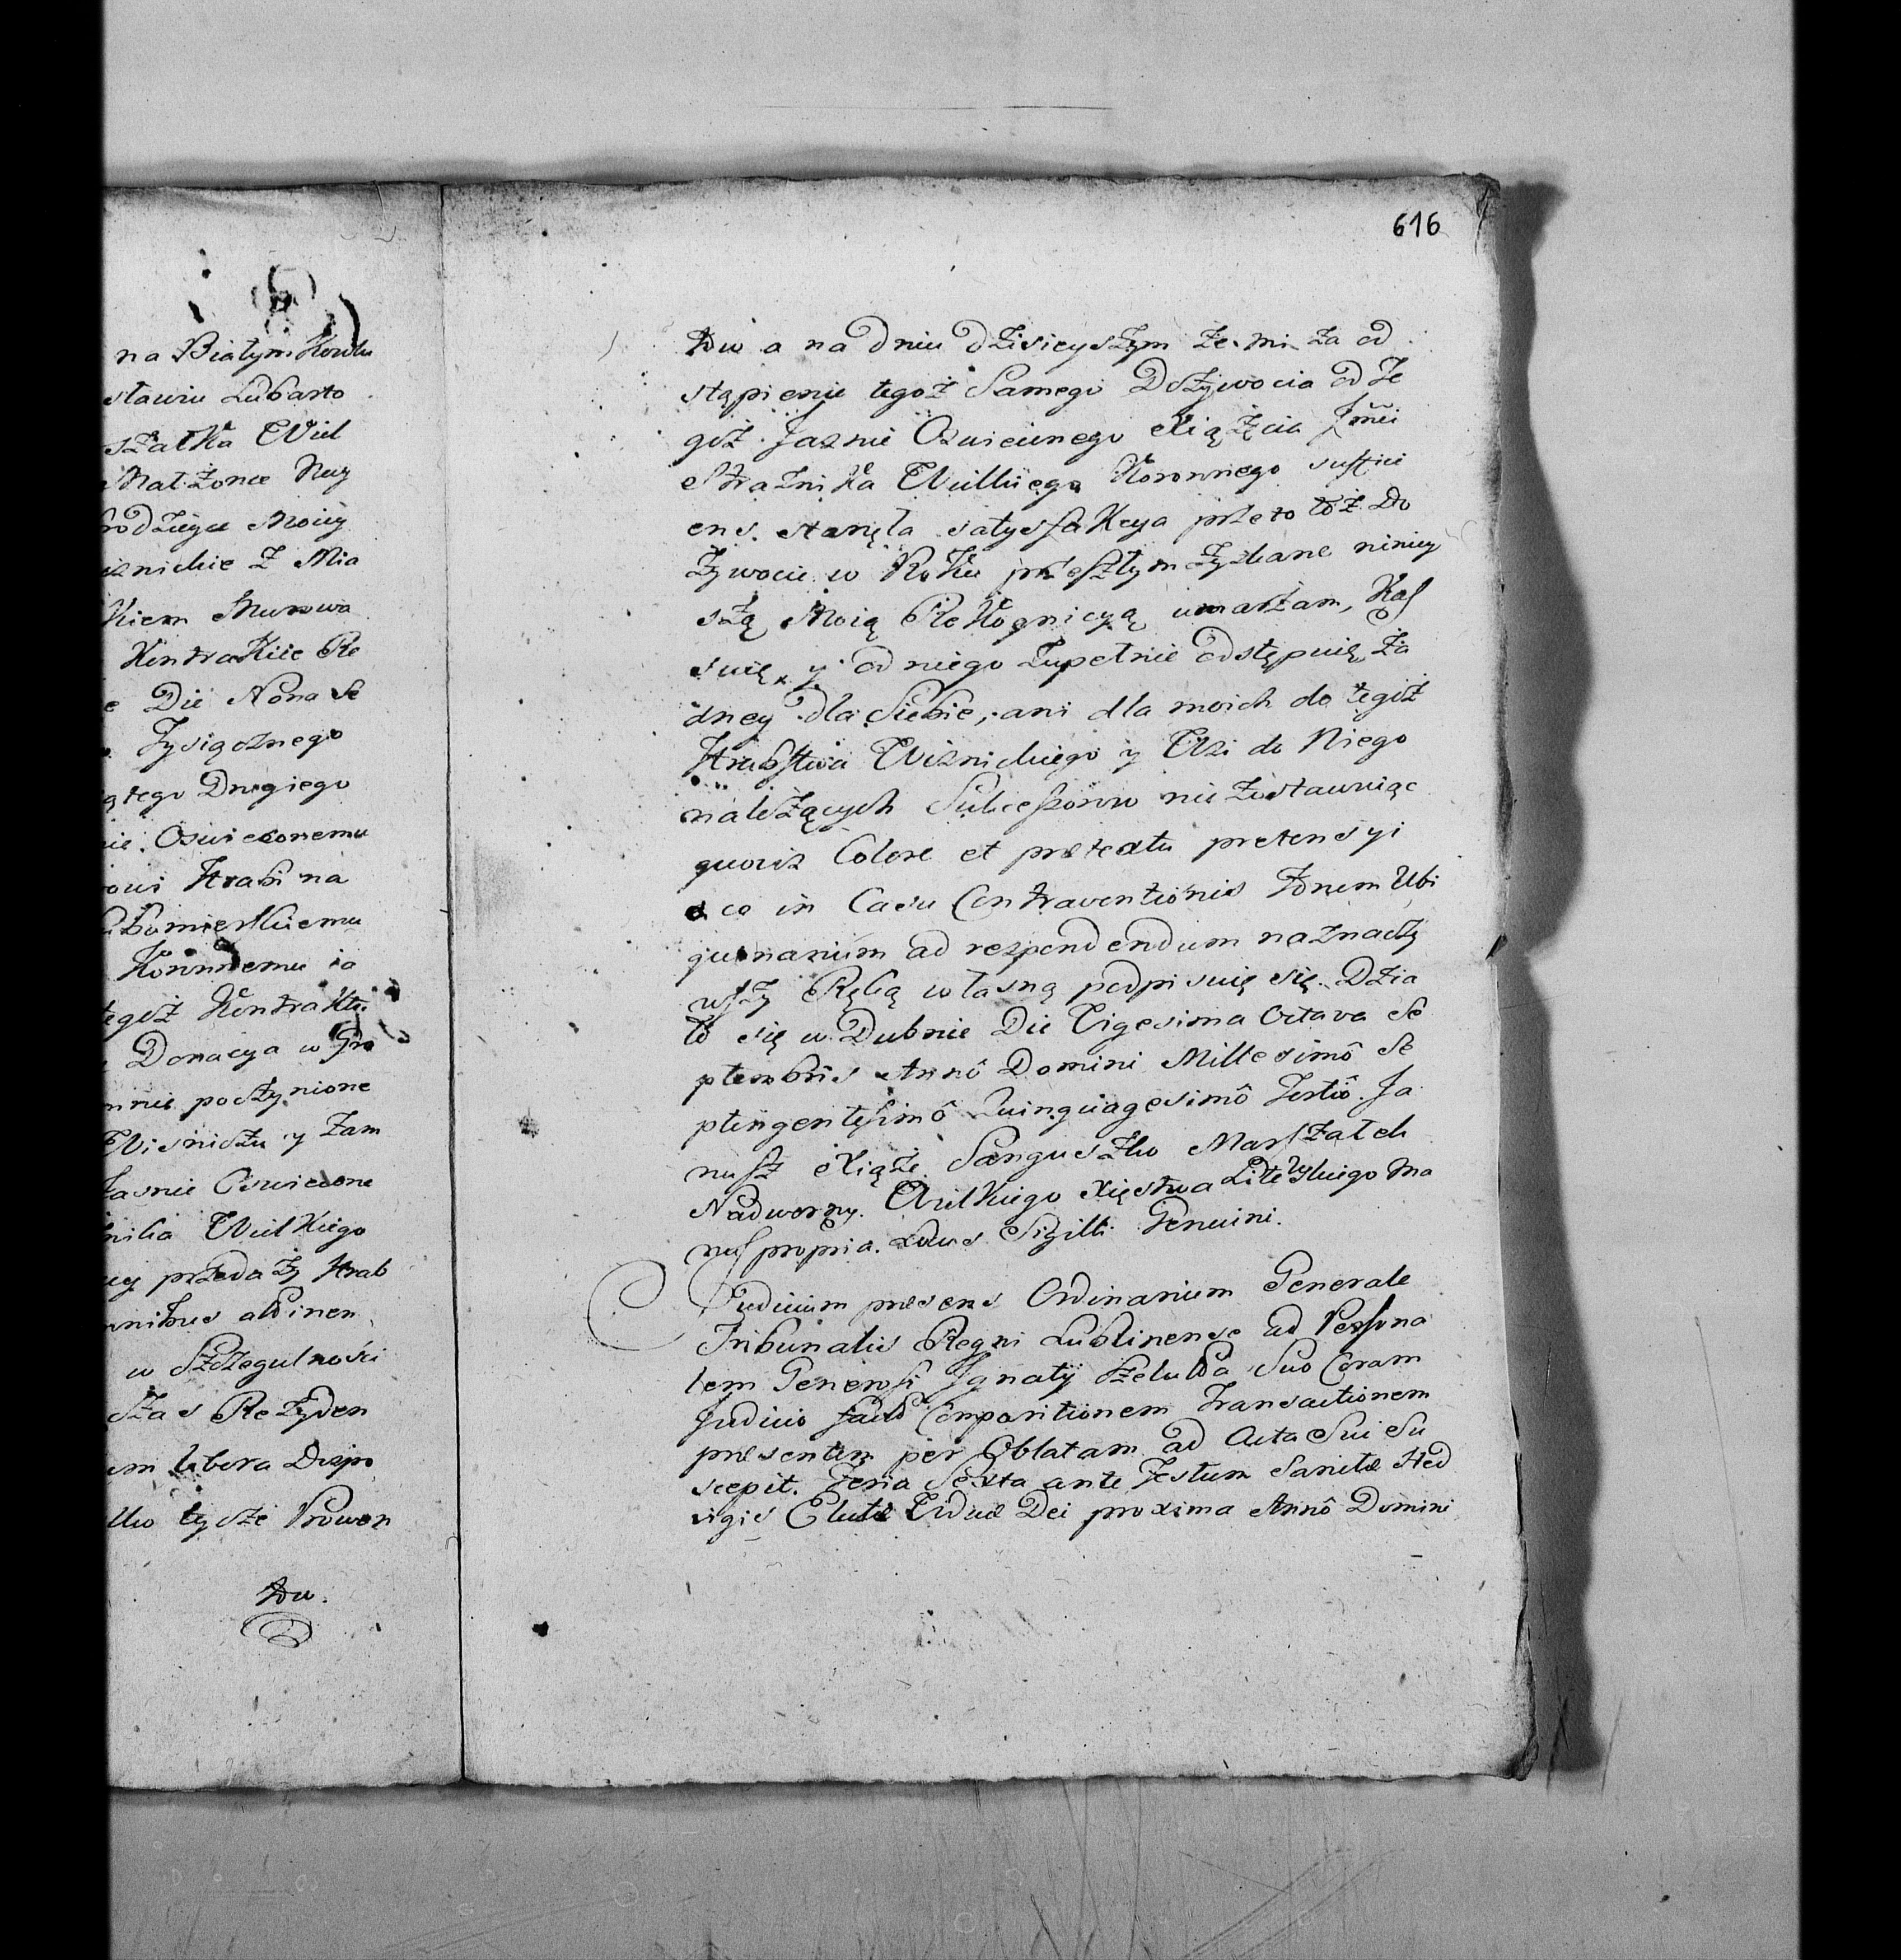 616
na Białym Kowlu
sławiu Lubarto
szałka Wiel
Małżonce Nay
rodzieyce Moiey
isznickie z Mia
kiem Murowa
Kontrakcie Re
e Die Nona Se
Tysiącznego
ątego Drugiego
nie Oswieconemu
owi Hrabi na
ubomierskiemu
Koronnemu ia
tegoż Kontraktu
Donacya w Gro
mnie poczynione
Wisniczu y Zam
Jasnie Oswiecone
nika Wielkiego
ey przedaży Hrab
omnibus attinen
w Szczegulności
czas Rezyden
um libera Dispo
lko tysze Prowen
tow.
tow a na dniu dzisieyszym że mi za od
stąpienie tegoż Samego Dożywocia od Je
goż Jasnie Oswieconego Xiążęcia Jmci
Strażnika Wielkiego Koronnego suffici
ens stanęła satysfakcya przeto toż Do
żywocie w Roku przeszłym zyskane niniey
szą Moią Rekognicyą umarzam, Kas
suię y od niego zupełnie odstępuię Ża
dney dla Siebie, ani dla moich do tegoż
Hrabstwa Wisnickiego y Wsi do Niego
należących Sukcessorow nie zostawuiąc
quovis Colore et prætextu pretensyi
o co in Casu Contraventionis Forum Ubi
quinarium ad respondendum naznaczy
wszy Ręką własną podpisuię się. Dzia
ło się w Dubnie Die Vigesima Octava Se
ptembris Annô Domini Millesimô Se
ptingentesimô Quinquagesimô Tertiô. Ja
nusz Xiąże Sanguszko Marszałek
Nadworny Wielkiego Xięstwa Litewskiego Ma
nus propria. Locus Sigilli Genuini.
Judicium præsens Ordinarium Generale
Tribunalis Regni Lublinense ad Persona
lem Generosi Ignatij Szeluta Suo Coram
Judicio factam Comparitionem Transactionem
præsentem per Oblatam ad Acta Sui Su
scepit. Feria Sexta ante Festum Sanctæ Hed
vigis Electæ Viduæ Dei proxima Annô Domini